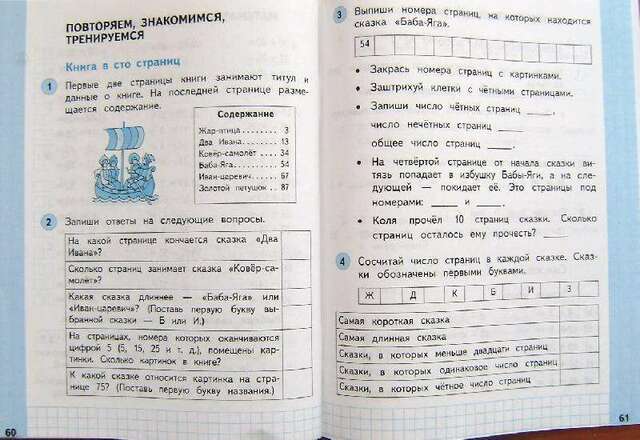 ПОВТОРЯЕМ, ЗНАКОМИМСЯ,
ТРЕНИРУЕМСЯ
Книга в сто страниц
1 Первые две страницы книги занимают титул и
данные о книге. На последней странице разме-
щается содержание.
Содержание
Жар-птица ........ 3
Два Ивана........ 13
Ковёр-самолёт .... 34
Баба-Яга........ 54
Иван-царевич..... 67
Золотой петушок .. 87
2 Запиши ответы на следующие вопросы.
На какой странице кончается сказка «Два
Ивана»?
Сколько страниц занимает сказка «Ковёр-са-
молёт»?
Какая сказка длиннее — «Баба-Яга» или
«Иван-царевич»? (Поставь первую букву вы-
бранной сказки — Б или И.)
На страницах, номера которых оканчиваются
цифрой 5 (5, 15, 25 и т. д.), помещены кар-
тинки. Сколько картинок в книге?
К какой сказке относится картинка на стра-
нице 75? (Поставь первую букву названия.)
60
3 Выпиши номера страниц, на которых находится
сказка «Баба-Яга».
54
• Закрась номера страниц с картинками.
• Заштрихуй клетки с чётными страницами.
• Запиши число чётных страниц ____,
число нечётных страниц ____,
общее число страниц ____.
• На четвёртой странице от начала сказки ви-
тязь попадает в избушку Бабы-Яги, а на сле-
дующей — покидает её. Это страницы под
номерами: ____ и ____.
• Коля прочёл 10 страниц сказки. Сколько
страниц осталось ему прочесть? ____.
4 Сосчитай число страниц в каждой сказке. Сказ-
ки обозначены первыми буквами.
Ж Д К Б И З
Самая короткая сказка
Самая длинная сказка
Сказки, в которых меньше двадцати страниц
Сказки, в которых одинаковое число страниц
Сказки, в которых чётное число страниц
61